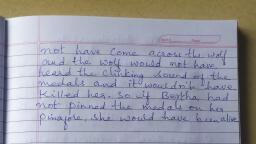 not have come across the wolf
and the wolf would not have
heard the clinking sound of the
medals and it wouldn't have
killed her. So if Bertha had
not pinned the medals on her
pinafore, she would have been alive